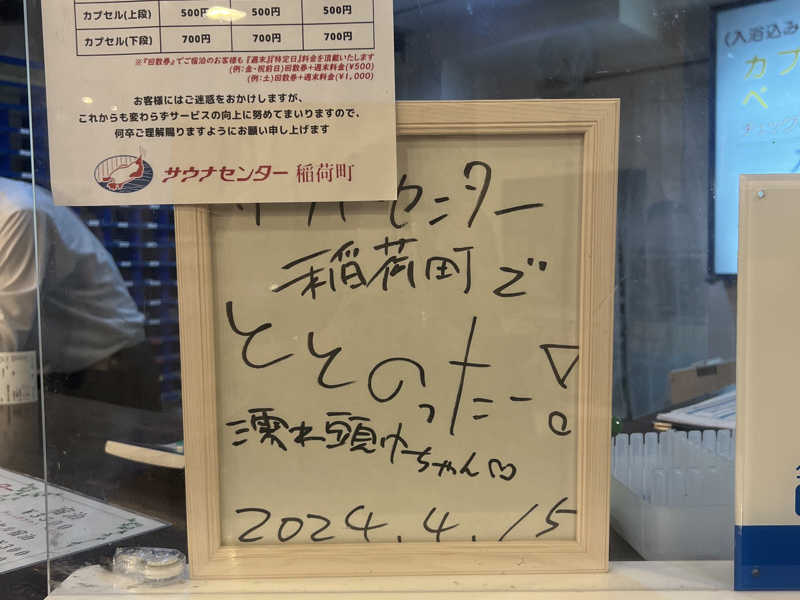 カプセル(上段) 500円 500円 500円
カプセル(下段) 700円 700円 700円
※『回数券』でご宿泊のお客様も『週末』『特定日』料金を頂戴いたします
(例:金・祝前日)回数券+週末料金(¥500)
(例:土)回数券+週末料金(¥1,000)
お客様にはご迷惑をおかけしますが、
これからも変わらずサービスの向上に努めてまいりますので、
何卒ご理解賜りますようにお願い申し上げます
サウナセンター 稲荷町
センター
稲荷町で
ととのったー!
濡れ頭巾ちゃん♡
2024.4.15
(入浴込み
カプ
ベ
チェック